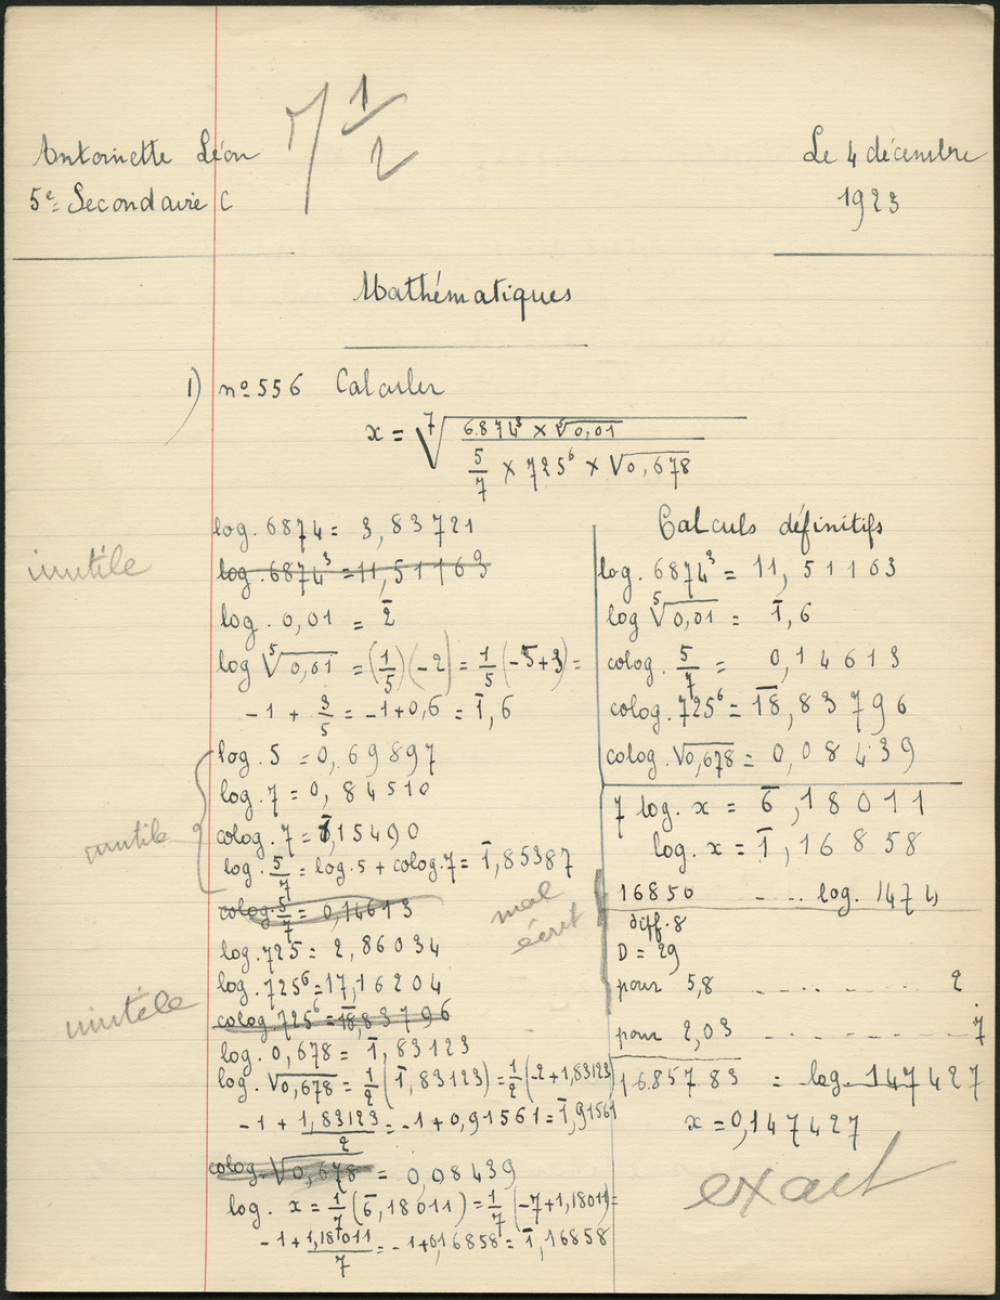 7 1/2
Antoinette Léon
5e Secondaire C
Le 4 décembre
1923
Mathématiques
1) nº 556 Calculer
x = ⁷√( (6874³ × ⁵√0,01) / (5/7 × 725⁶ × √0,678) )
log. 6874 = 3,83721
inutile
log. 6874³ = 11,51163
log. 0,01 = 2̄
log ⁵√0,01 = (1/5)(-2) = 1/5(-5+3) =
-1 + 3/5 = -1+0,6 = 1̄,6
log. 5 = 0,69897
log. 7 = 0,84510
inutile
colog. 7 = 1̄,15490
log. 5/7 = log. 5 + colog. 7 = 1̄,85387
colog. 5/7 = 0,14613
log. 725 = 2,86034
log. 725⁶ = 17,16204
inutile
colog. 725⁶ = 1̄8̄,83796
log. 0,678 = 1̄,83123
log. √0,678 = 1/2(1̄,83123) = 1/2(-2+1,83123)
-1 + 1,83123/2 = -1+0,91561 = 1̄,91561
colog. √0,678 = 0,08439
log. x = 1/7(6̄,18011) = 1/7(-7+1,18011) =
-1 + 1,18011/7 = -1+0,16858 = 1̄,16858
Calculs définitifs
log. 6874³ = 11,51163
log ⁵√0,01 = 1̄,6
colog. 5/7 = 0,14613
colog. 725⁶ = 1̄8̄,83796
colog. √0,678 = 0,08439
7 log. x = 6̄,18011
log. x = 1̄,16858
mal
écrit
16850 - ... log. 1474
diff. 8
D = 29
pour 5,8 - - - - - - 2
pour 2,03 - - - - - - 7
16.85783 = log. 147427
x = 0,147427
exact